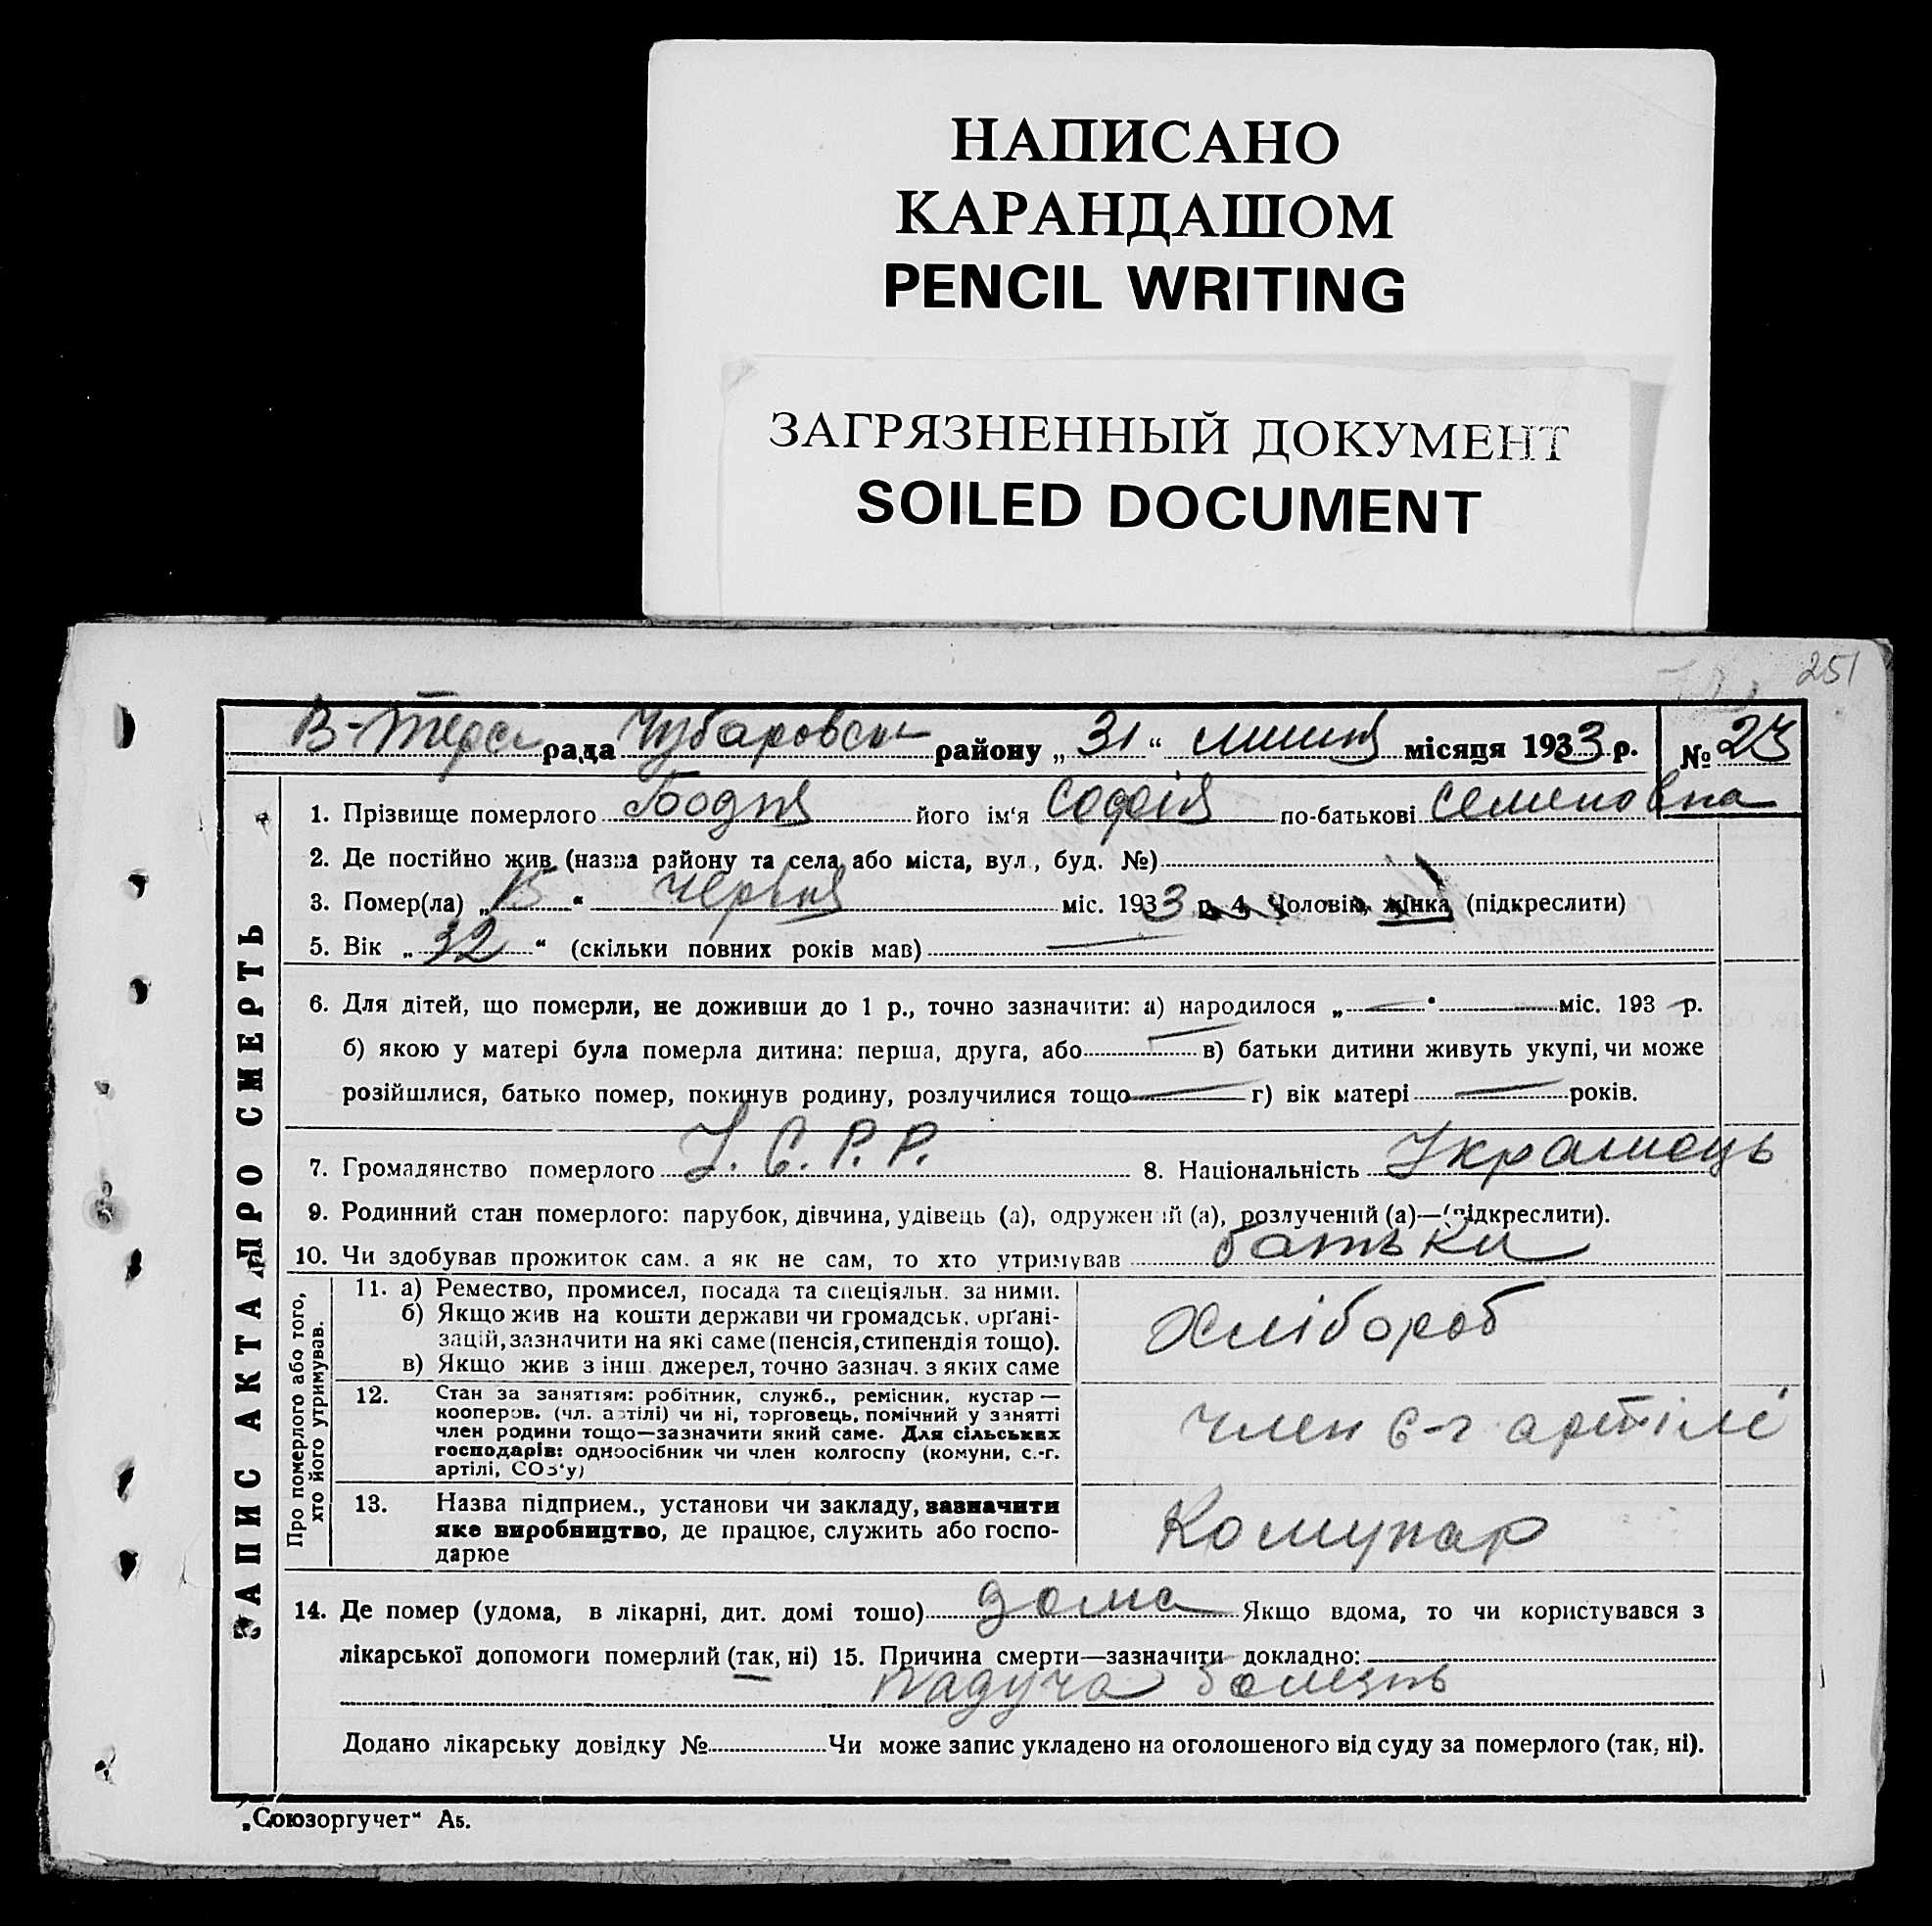 НАПИСАНО
КАРАНДАШОМ
PENCIL WRITING
ЗАГРЯЗНЕННЫЙ ДОКУМЕНТ
SOILED DOCUMENT
251
В-Терс рада Чубаровськ району „31“ липня місяця 1933 р. № 23
ЗАПИС АКТА ПРО СМЕРТЬ
1. Прізвище померлого Бодня його ім‘я Софія по-батькові Семеновна
2. Де постійно жив (назва району та села або міста, вул., буд. №)
3. Помер(ла) „15“ червня міс. 1933 р. 4. Чоловік, жінка (підкреслити)
5. Вік „32“ (скільки повних років мав) —
6. Для дітей, що померли, не доживши до 1 р., точно зазначити: а) народилося „—“ — міс. 193 — р.
б) якою у матері була померла дитина: перша, друга, або — в) батьки дитини живуть укупі, чи може
розійшлися, батько помер, покинув родину, розлучилися тощо — г) вік матері — років.
7. Громадянство померлого У.С.Р.Р. 8. Національність Українець
9. Родинний стан померлого: парубок, дівчина, удівець (а), одружений (а), розлучений (а)—(підкреслити).
10. Чи здобував прожиток сам, а як не сам, то хто утримував батьки
Про померлого або того,
хто його утримував.
11. а) Ремество, промисел, посада та спеціяльн. за ними.
б) Якщо жив на кошти держави чи громадськ. органі-
зацій, зазначити на які саме (пенсія, стипендія тощо).
в) Якщо жив з інш. джерел, точно зазнач. з яких саме
Хлібороб
12. Стан за заняттям: робітник, служб., ремісник, кустар —
кооперов. (чл. артілі) чи ні, торговець, помічний у занятті
член родини тощо—зазначити який саме. Для сільських
господарів: одноосібник чи член колгоспу (комуни, с.-г.
артілі, СОЗ‘у)
член с-г артілі
13. Назва підприєм., установи чи закладу, зазначити
яке виробництво, де працює, служить або госпо-
дарює
Комунар
14. Де помер (удома, в лікарні, дит. домі тощо) дома Якщо вдома, то чи користувався з
лікарської допомоги померлий (так, ні) 15. Причина смерти—зазначити докладно:
падуча болезнь
Додано лікарську довідку № Чи може запис укладено на оголошеного від суду за померлого (так, ні).
„Союзоргучет“ А5.